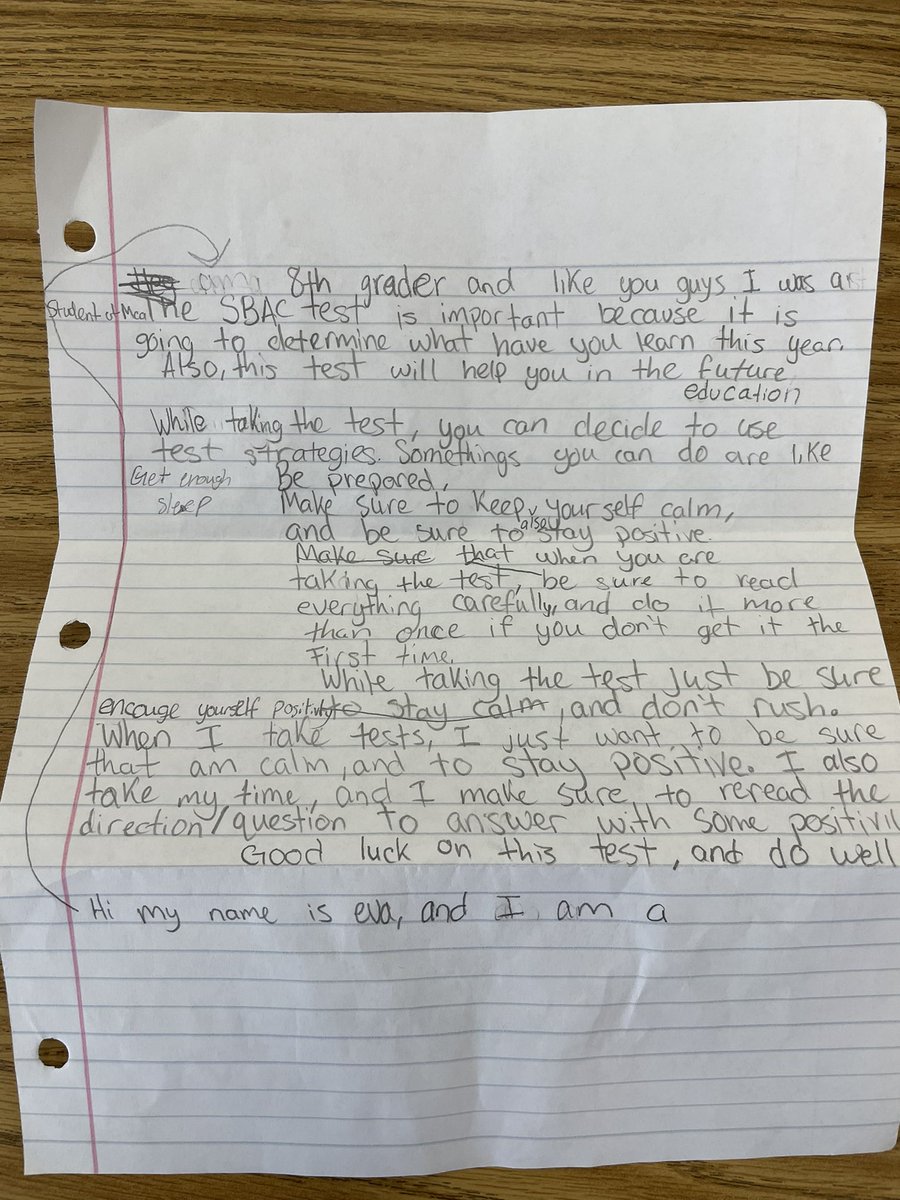 am a 8th grader and like you guys I was a
Student at Mcal The SBAC test is important because it is
going to determine what have you learn this year.
Also, this test will help you in the future
education
While taking the test, you can decide to use
test strategies. Somethings you can do are like
Get enough Be prepared,
sleep Make sure to keep yourself calm,
and be sure to also stay positive.
Make sure that when you are
taking the test, be sure to read
everything carefully, and do it more
than once if you don't get it the
First time.
While taking the test just be sure
encouge yourself positivity to stay calm, and don't rush.
When I take tests, I just want to be sure
that am calm, and to stay positive. I also
take my time, and I make sure to reread the
direction/question to answer with some positivi
Good luck on this test, and do well
Hi my name is eva, and I am a